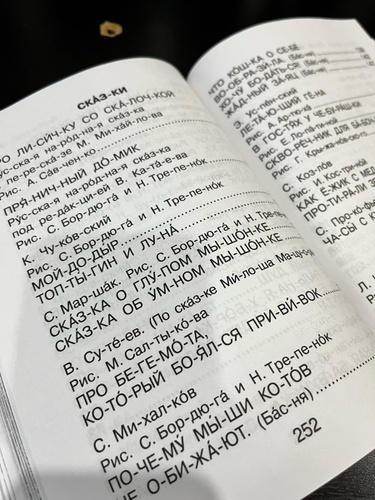 СКА́З-КИ
ЛИ-СИ́Ч-КУ СО СКА́-ЛОЧ-КОЙ
Ру́с-ска-я на-ро́д-на-я ска́з-ка
в пе-ре-ска́-зе М. Ми-хай-ло-ва
Рис. А. Са́в-чен-ко
ПРЯ́-НИЧ-НЫЙ ДО́-МИК
Ру́с-ска-я на-ро́д-на-я ска́з-ка
под ре-да́к-ци-ей В. Ка-та́-е-ва
Рис. С. Бор-дю-га́ и Н. Тре-пе-но́к
К. Чу-ко́в-ский
Рис. С. Бор-дю-га́ и Н. Тре-пе-но́к
МОЙ-ДО-ДЫ́Р
ТОП-ТЫ́-ГИН И ЛУ-НА́
С. Мар-ша́к. Рис. С. Бор-дю-га́ и Н. Тре-пе-
СКА́З-КА О ГЛУ́-ПОМ МЫ-ШО́Н-КЕ
СКА́З-КА ОБ У́М-НОМ МЫ-ШО́Н-КЕ
В. Су-те́-ев. (По ска́з-ке Ми́-ло-ша Ма-цо́у-
Рис. М. Сал-ты-ко́-ва
ПРО БЕ-ГЕ-МО́-ТА,
КО-ТО́-РЫЙ БО-Я́Л-СЯ ПРИ-ВИ́-ВОК
С. Ми-хал-ко́в
Рис. С. Бор-дю-га́ и Н. Тре-пе-но́к
ПО-ЧЕ-МУ́ МЫ́-ШИ КО-ТО́В
НЕ О-БИ-ЖА́-ЮТ. (Ба́с-ня)
252
ЧТО КО́Ш-КА О СЕ-БЕ́
ВО-ОБ-РА-ЗИ́-ЛА (Ба́с-ня)
ХО-ЧУ́ БО-ДА́ТЬ-СЯ!
ЗА́Д-НЫЙ ЗА́-ЯЦ (Ба́с-ня)
Э. Ус-пе́н-ский
ЛЕ-ТА́-Ю-ЩИЙ ГЕ́-НА
Рис.
В ГОС-ТЯ́Х У ЧЕ-БУ-РА́Ш-КИ
Рис. Е. Ло-па-ти-
СКВО-РЕ́Ч-НИК ДЛЯ
Рис. Г.
С. Коз-ло́в
Рис. И. Кос-три-но́й
КАК Ё-ЖИК С МЕД-
ПРО-ТИ-РА́-ЛИ
С. Про-ко́-фь-
ЧА-СЫ́ С
Л.